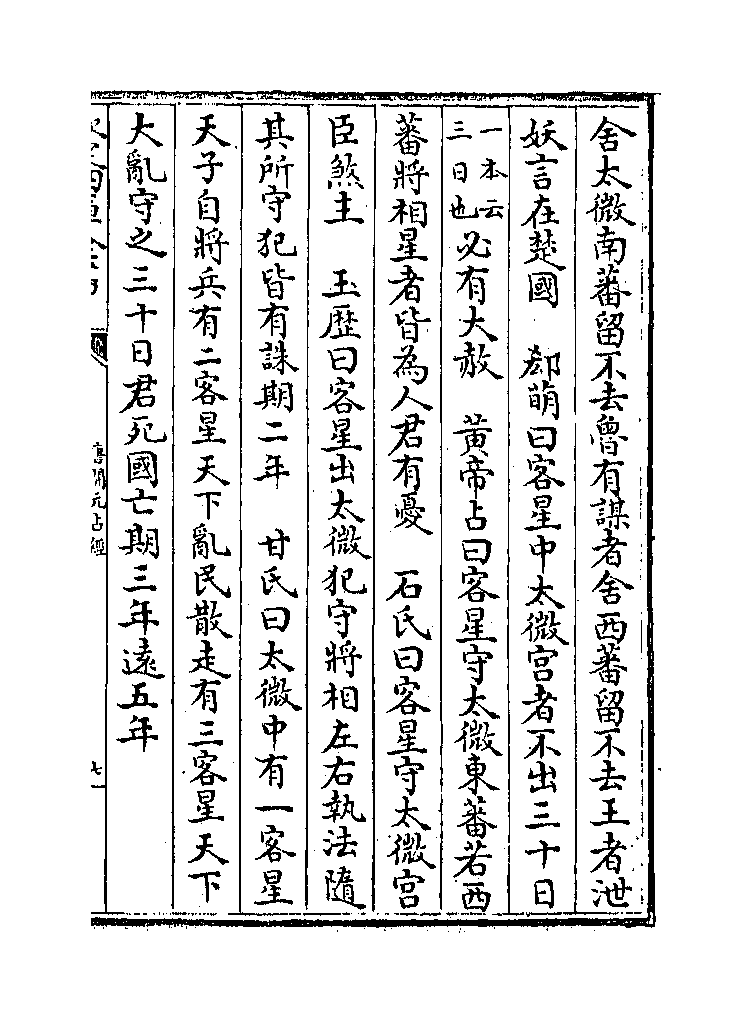 舍太微南蕃留不去魯有謀者舍西蕃留不去王者泄
妖言在楚國　郄萌曰客星中太微宫者不出三十日
一本云
三日也
必有大赦　黄帝占曰客星守太微東蕃若西
蕃將相星者皆為人君有憂　石氏曰客星守太微宫
臣煞主　玉歴曰客星出太微犯守將相左右執法隨
其所守犯皆有誅期二年　甘氏曰太微中有一客星
天子自將兵有二客星天下亂民散走有三客星天下
大亂守之三十日君死國亡期三年遠五年
唐開元占經